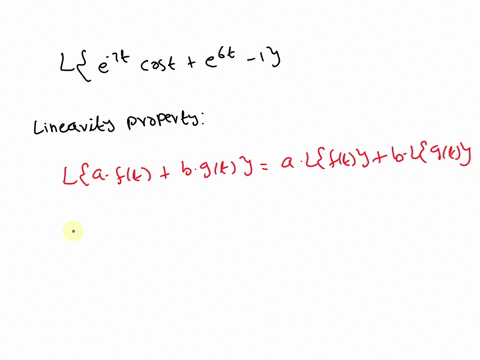 L{e^-7t cost + e^6t - 1}
Linearity property:
L{a·f(t) + b·g(t)} = a·L{f(t)} + b·L{g(t)}